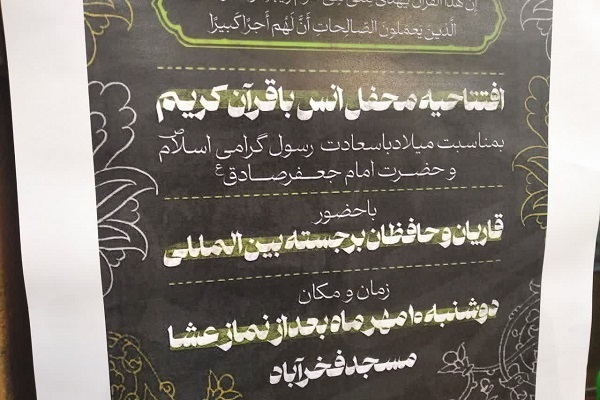 إن هذا القرآن یهدی
الَّذِینَ یَعمَلونَ الصّالِحاتِ أنَّ لَهُم أجرًا کَبیرًا
افتتاحیه محفل انس با قرآن کریم
بمناسبت میلاد با سعادت رسول گرامی اسلام ص
و حضرت امام جعفر صادق ع
با حضور
قاریان و حافظان برجسته بین المللی
زمان و مکان
دوشنبه ۱۰ مهر ماه بعد از نماز عشا
مسجد فخرآباد